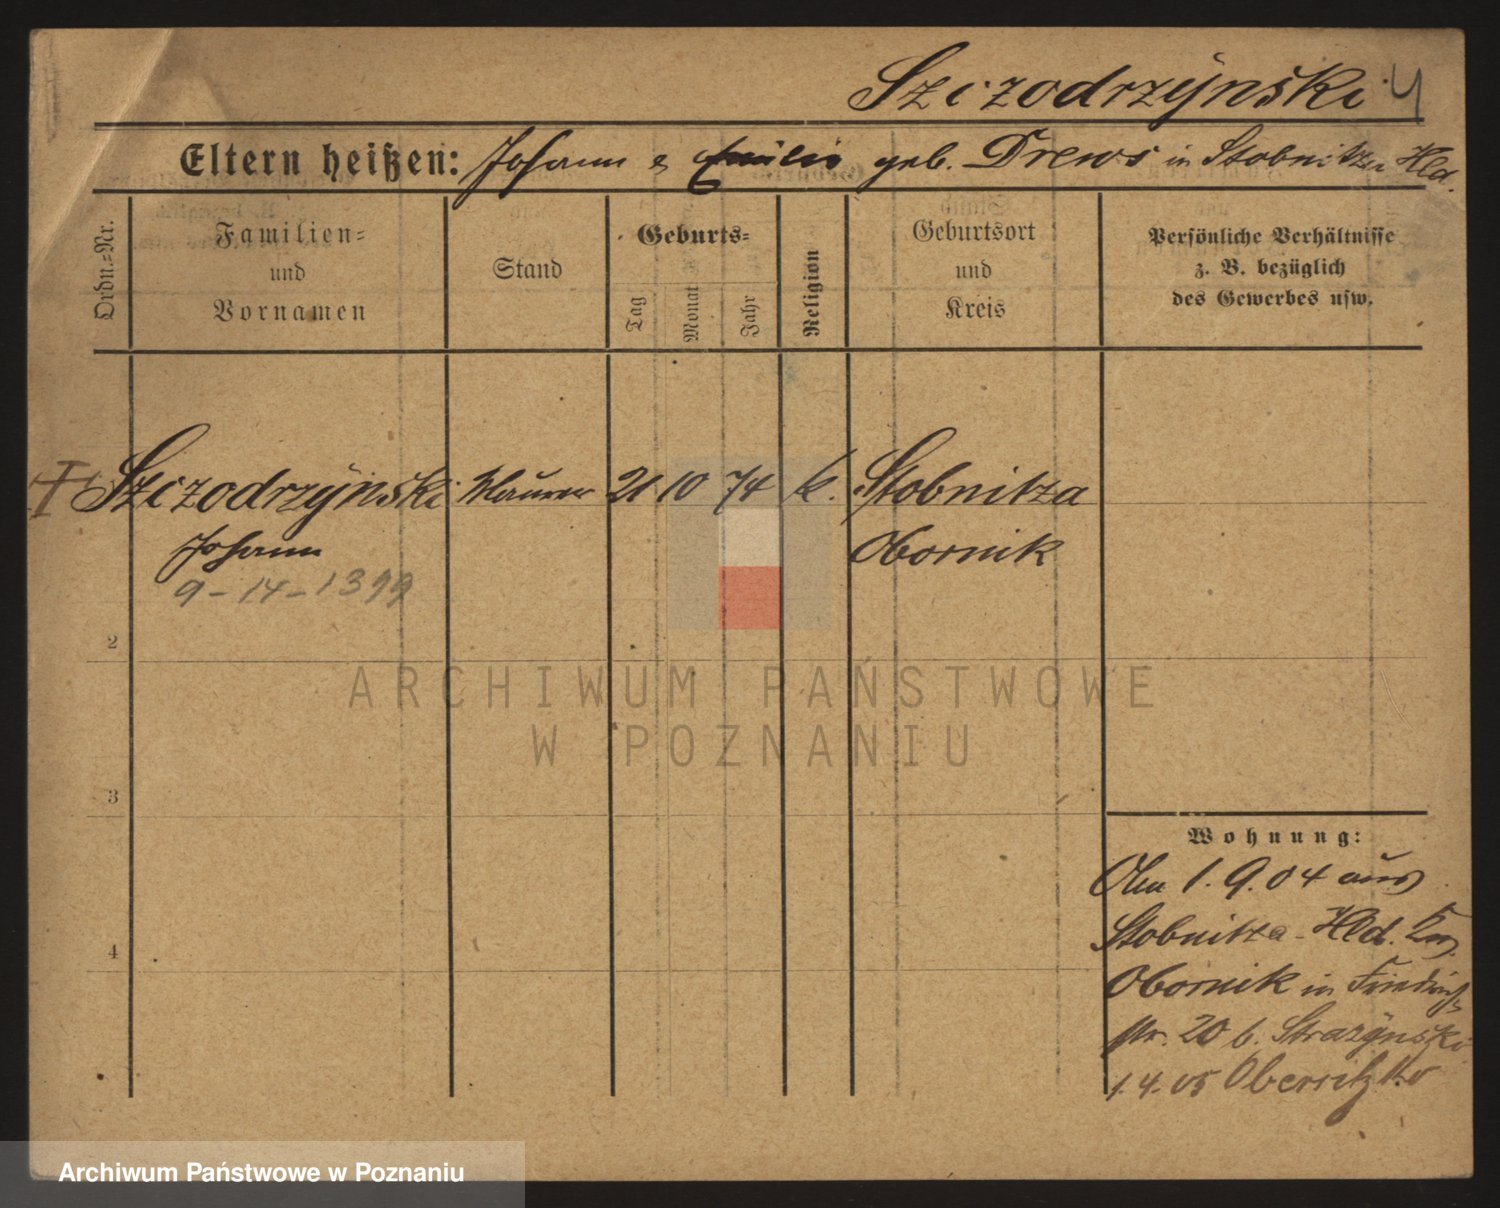 Szczodrzynski 4
Eltern heißen: Johann & Emilie geb. Drews in Stobnitza Hld.
Ordn.-Nr.
Familien-
und
Vornamen
Stand
Geburts-
Tag
Monat
Jahr
Religion
Geburtsort
und
Kreis
Persönliche Verhältnisse
z. B. bezüglich
des Gewerbes usw.
Szczodrzynski Maurer 21 10 74 k. Stobnitza
Johann Obornik
9-14-1399
2
3
4
ARCHIWUM PAŃSTWOWE
W POZNANIU
Wohnung:
Am 1.9.04 aus
Stobnitza-Hld. Krs.
Obornik in Friedrich
str. 20 b. Strazynski
1.4.05
Archiwum Państwowe w Poznaniu